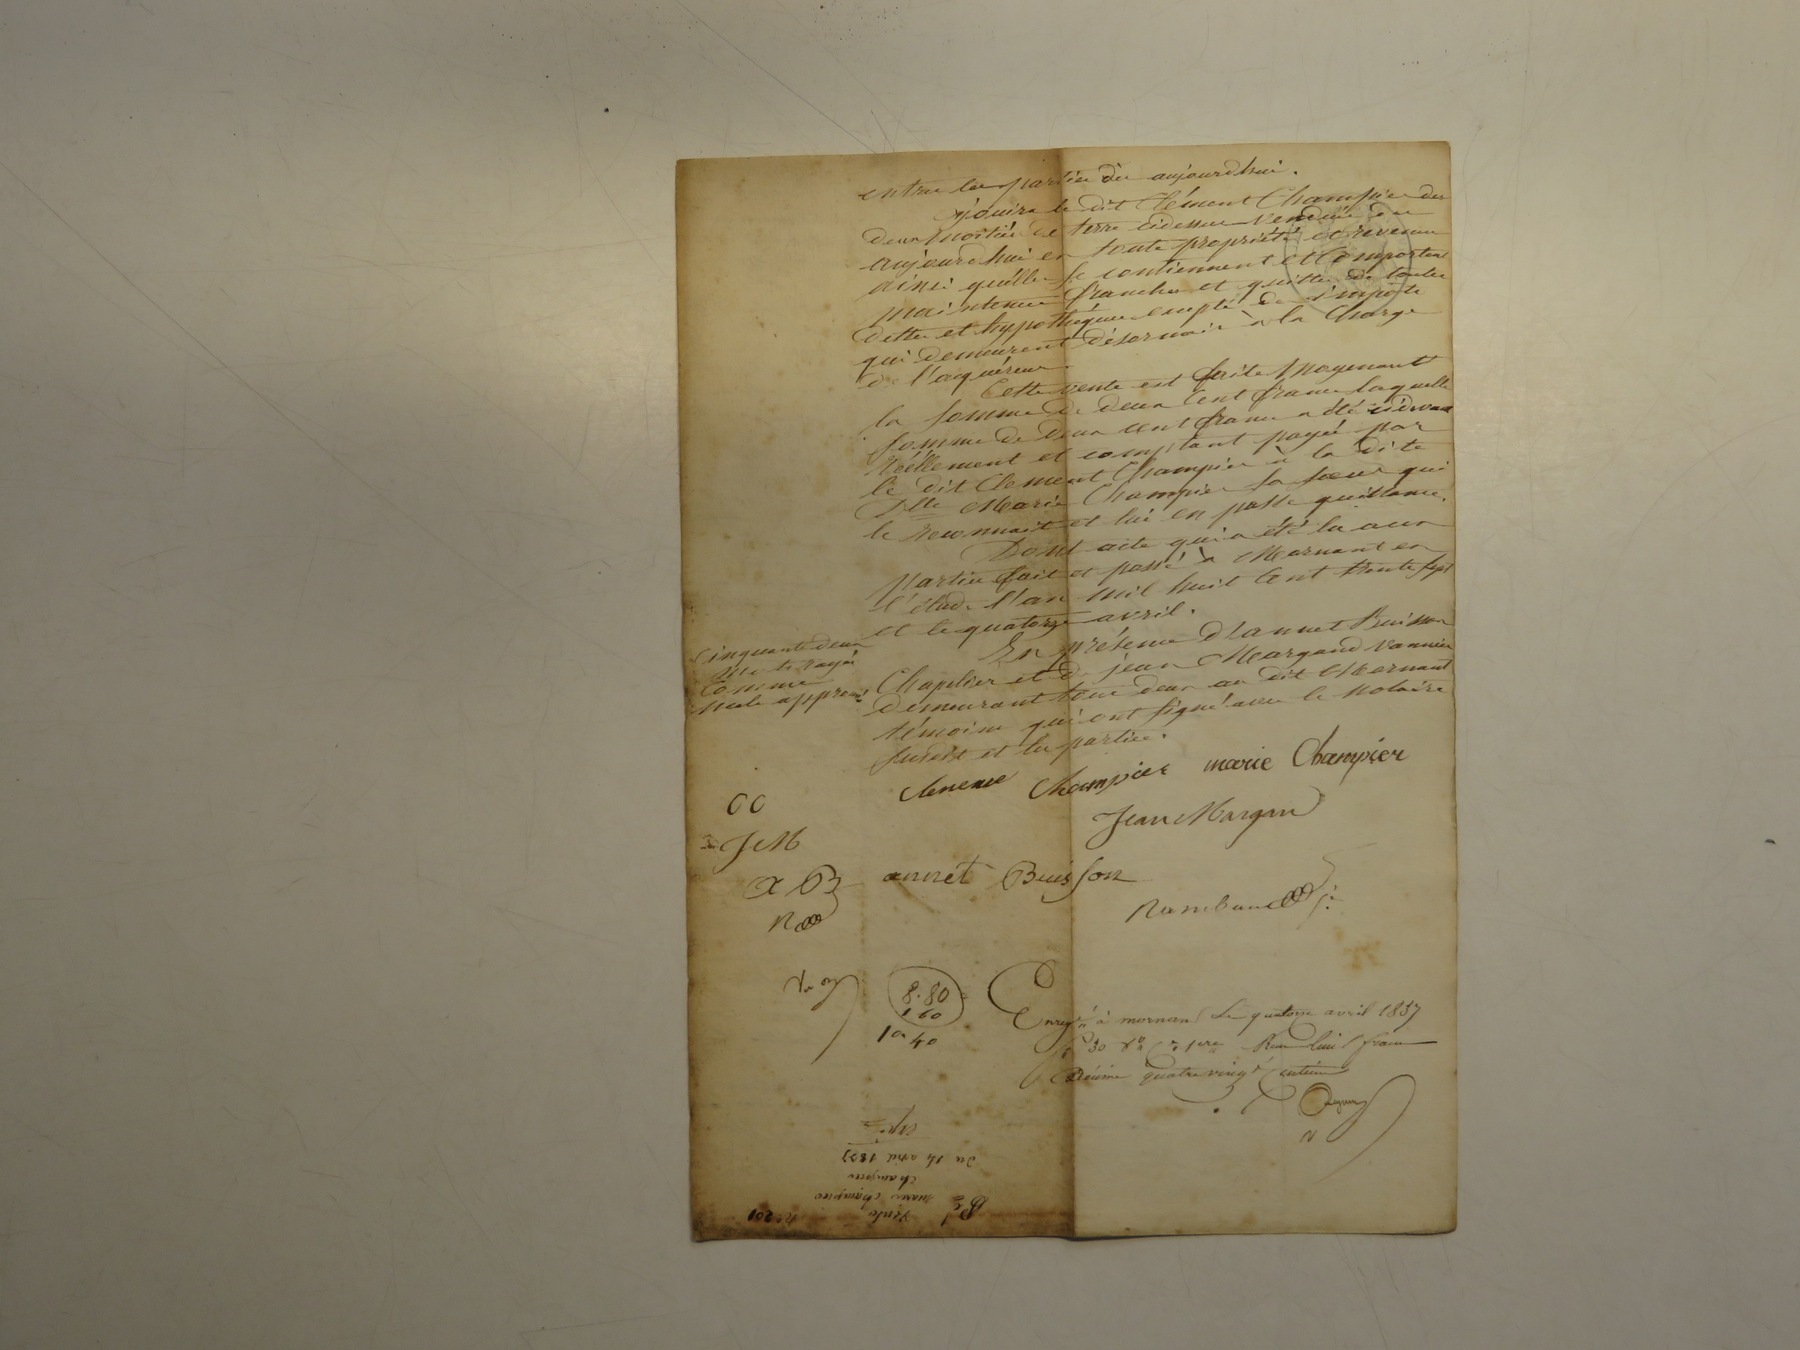 entre les parties dès aujourdhui.
Jouira le dit Clément Champier des
deux moitiés de terre cidessus vendues dès
aujourdhui en toute propriété et revenu
ainsi quélles se contiennent et Comportent
maintenues franches et quittes de toutes
dettes et hypothéques excepté de l'impôts
qui demeurent désormais à la Charge
de l'acquéreur.
Cette vente est faite Moyenant
la somme de deux Cent francs laquelle
somme de deux cent francs a été cidevant
Réellement et comptant payée par
le dit Clément Champier à la dite
Dlle Marie Champier sa sœur qui
le reconnait et lui en passe quittance.
Dont acte qui a été lu aux
parties fait et passé à Mornant en
l'étude l'an mil huit Cent trente sept
et le quatorze avril.
En présence D'annet Buisson
Chapelier et de jean Margand Vannier
demeurant tous deux au dit Mornant
témoins qui ont signé avec le Notaire
susdit et les parties.
Cinquante deux
mots rayés
Comme
nuls approuvés
clement Champier marie Champier
Jean Margan
CC
JM
a B
annet Buisson
R
Rambaud
8.80
1 60
10 40
Enregé à mornant Le quatorze avril 1837
fo 30 Ro Reçu huit francs
Décime quatrevingt Centimes
No 201
Vente
marie champier
champier
du 14 avril 1837
Expé